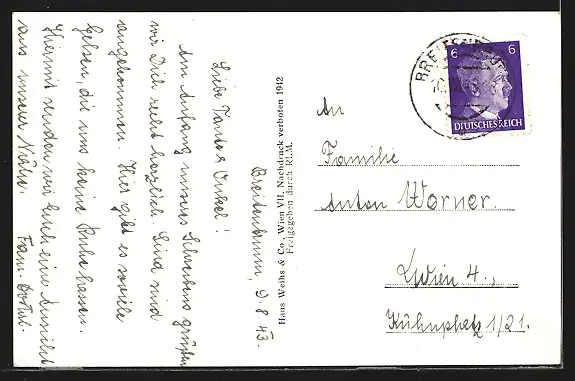 Breitenbrunn, 9.8.43.
Liebe Tante & Onkel!
Am Anfang unseres Schreibens grüßen
wir Dich recht herzlich. Sind nun
angekommen. Hier gibt es soviele
Gelsen, die uns keine Ruhe lassen.
Hiermit senden wir Euch eine Ansicht
aus unserer Nähe.
Fam.
Hans Weihs & Co., Wien VII. Nachdruck verboten 1942
Freigegeben durch RLM.
BREITENBRUNN
6 6
DEUTSCHES REICH
An
Familie
Anton Worner.
Wien 4.,
Kühnplatz 1/21.